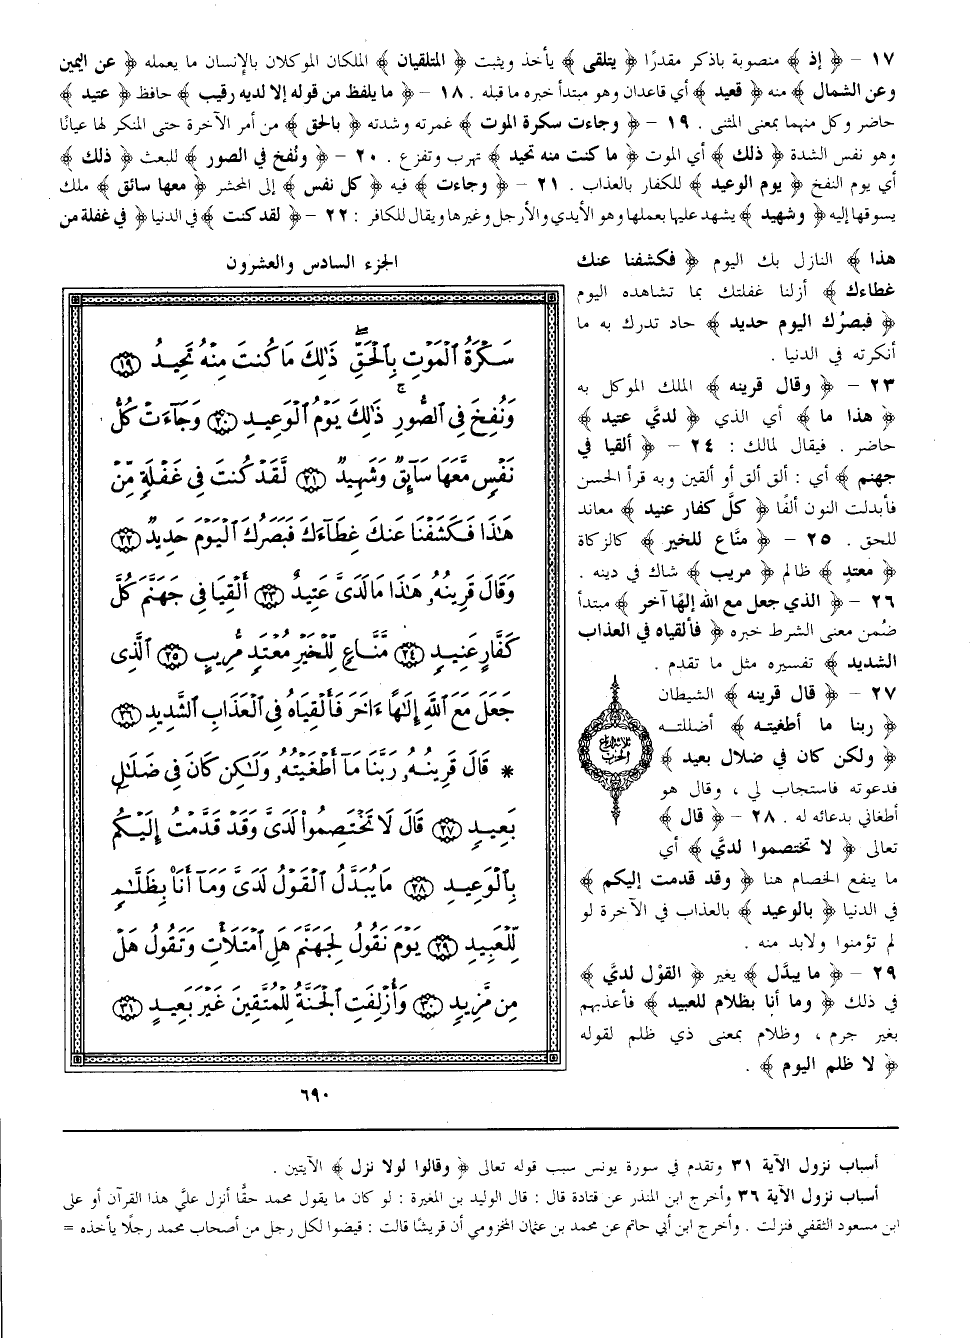 ١٧ - ﴿ إذ ﴾ منصوبة باذكر مقدرًا ﴿ يتلقى ﴾ يأخذ ويثبت ﴿ المتلقيان ﴾ الملكان الموكلان بالإنسان ما يعمله ﴿ عن اليمين
وعن الشمال ﴾ منه ﴿ قعيد ﴾ أي قاعدان وهو مبتدأ خبره ما قبله . ١٨ - ﴿ ما يلفظ من قوله إلا لديه رقيب ﴾ حافظ ﴿ عتيد ﴾
حاضر وكل منهما بمعنى المثنى . ١٩ - ﴿ وجاءت سكرة الموت ﴾ غمرته وشدته ﴿ بالحق ﴾ من أمر الآخرة حتى المنكر لها عيانًا
وهو نفس الشدة ﴿ ذلك ﴾ أي الموت ﴿ ما كنت منه تحيد ﴾ تهرب وتفزع . ٢٠ - ﴿ ونُفخ في الصور ﴾ للبعث ﴿ ذلك ﴾
أي يوم النفخ ﴿ يوم الوعيد ﴾ للكفار بالعذاب . ٢١ - ﴿ وجاءت ﴾ فيه ﴿ كل نفس ﴾ إلى المحشر ﴿ معها سائق ﴾ ملك
يسوقها إليه ﴿ وشهيد ﴾ يشهد عليها بعملها وهو الأيدي والأرجل وغيرها ويقال للكافر : ٢٢ - ﴿ لقد كنت ﴾ في الدنيا ﴿ في غفلة من
هذا ﴾ النازل بك اليوم ﴿ فكشفنا عنك
غطاءك ﴾ أزلنا غفلتك بما تشاهده اليوم
﴿ فبصرُك اليوم حديد ﴾ حاد تدرك به ما
أنكرته في الدنيا .
٢٣ - ﴿ وقال قرينه ﴾ الملك الموكل به
﴿ هذا ما ﴾ أي الذي ﴿ لديَّ عتيد ﴾
حاضر . فيقال لمالك : ٢٤ - ﴿ ألقيا في
جهنم ﴾ أي : ألق ألق أو ألقين وبه قرأ الحسن
فأبدلت النون ألفًا ﴿ كلَّ كفار عنيد ﴾ معاند
للحق . ٢٥ - ﴿ منَّاع للخير ﴾ كالزكاة
﴿ معتدٍ ﴾ ظالم ﴿ مريب ﴾ شاك في دينه .
٢٦ - ﴿ الذي جعل مع الله إلهًا آخر ﴾ مبتدأ
ضُمن معنى الشرط خبره ﴿ فألقياه في العذاب
الشديد ﴾ تفسيره مثل ما تقدم .
٢٧ - ﴿ قال قرينه ﴾ الشيطان
﴿ ربنا ما أطغيته ﴾ أضللته
﴿ ولكن كان في ضلال بعيد ﴾
فدعوته فاستجاب لي ، وقال هو
أطغاني بدعائه له . ٢٨ - ﴿ قال ﴾
تعالى ﴿ لا تختصموا لديَّ ﴾ أي
ما ينفع الخصام هنا ﴿ وقد قدمت إليكم ﴾
في الدنيا ﴿ بالوعيد ﴾ بالعذاب في الآخرة لو
لم تؤمنوا ولابد منه .
٢٩ - ﴿ ما يبدَّل ﴾ يغير ﴿ القوْل لديَّ ﴾
في ذلك ﴿ وما أنا بظلام للعبيد ﴾ فأعذبهم
بغير جرم ، وظلام بمعنى ذي ظلم لقوله
﴿ لا ظلم اليوم ﴾ .
ثلاثة أرباع
الحزب
الجزء السادس والعشرون
سَكْرَةُ ٱلْمَوْتِ بِٱلْحَقِّ ۖ ذَٰلِكَ مَا كُنتَ مِنْهُ تَحِيدُ ﴿١٩﴾
وَنُفِخَ فِى ٱلصُّورِ ۚ ذَٰلِكَ يَوْمُ ٱلْوَعِيدِ ﴿٢٠﴾ وَجَآءَتْ كُلُّ
نَفْسٍ مَّعَهَا سَآئِقٌ وَشَهِيدٌ ﴿٢١﴾ لَّقَدْ كُنتَ فِى غَفْلَةٍ مِّنْ
هَٰذَا فَكَشَفْنَا عَنكَ غِطَآءَكَ فَبَصَرُكَ ٱلْيَوْمَ حَدِيدٌ ﴿٢٢﴾
وَقَالَ قَرِينُهُۥ هَٰذَا مَا لَدَىَّ عَتِيدٌ ﴿٢٣﴾ أَلْقِيَا فِى جَهَنَّمَ كُلَّ
كَفَّارٍ عَنِيدٍ ﴿٢٤﴾ مَّنَّاعٍ لِّلْخَيْرِ مُعْتَدٍ مُّرِيبٍ ﴿٢٥﴾ ٱلَّذِى
جَعَلَ مَعَ ٱللَّهِ إِلَٰهًا ءَاخَرَ فَأَلْقِيَاهُ فِى ٱلْعَذَابِ ٱلشَّدِيدِ ﴿٢٦﴾
* قَالَ قَرِينُهُۥ رَبَّنَا مَآ أَطْغَيْتُهُۥ وَلَٰكِن كَانَ فِى ضَلَٰلٍۭ
بَعِيدٍ ﴿٢٧﴾ قَالَ لَا تَخْتَصِمُوا۟ لَدَىَّ وَقَدْ قَدَّمْتُ إِلَيْكُم
بِٱلْوَعِيدِ ﴿٢٨﴾ مَا يُبَدَّلُ ٱلْقَوْلُ لَدَىَّ وَمَآ أَنَا۠ بِظَلَّٰمٍ
لِّلْعَبِيدِ ﴿٢٩﴾ يَوْمَ نَقُولُ لِجَهَنَّمَ هَلِ ٱمْتَلَأْتِ وَتَقُولُ هَلْ
مِن مَّزِيدٍ ﴿٣٠﴾ وَأُزْلِفَتِ ٱلْجَنَّةُ لِلْمُتَّقِينَ غَيْرَ بَعِيدٍ ﴿٣١﴾
٦٩٠
أسباب نزول الآية ٣١ وتقدم في سورة يونس سبب قوله تعالى ﴿ وقالوا لولا نزل ﴾ الآيتين .
أسباب نزول الآية ٣٦ وأخرج ابن المنذر عن قتادة قال : قال الوليد بن المغيرة : لو كان ما يقول محمد حقًّا أنزل عليَّ هذا القرآن أو على
ابن مسعود الثقفي فنزلت . وأخرج ابن أبي حاتم عن محمد بن عثمان المخزومي أن قريشًا قالت : قيضوا لكل رجل من أصحاب محمد رجلًا يأخذه =